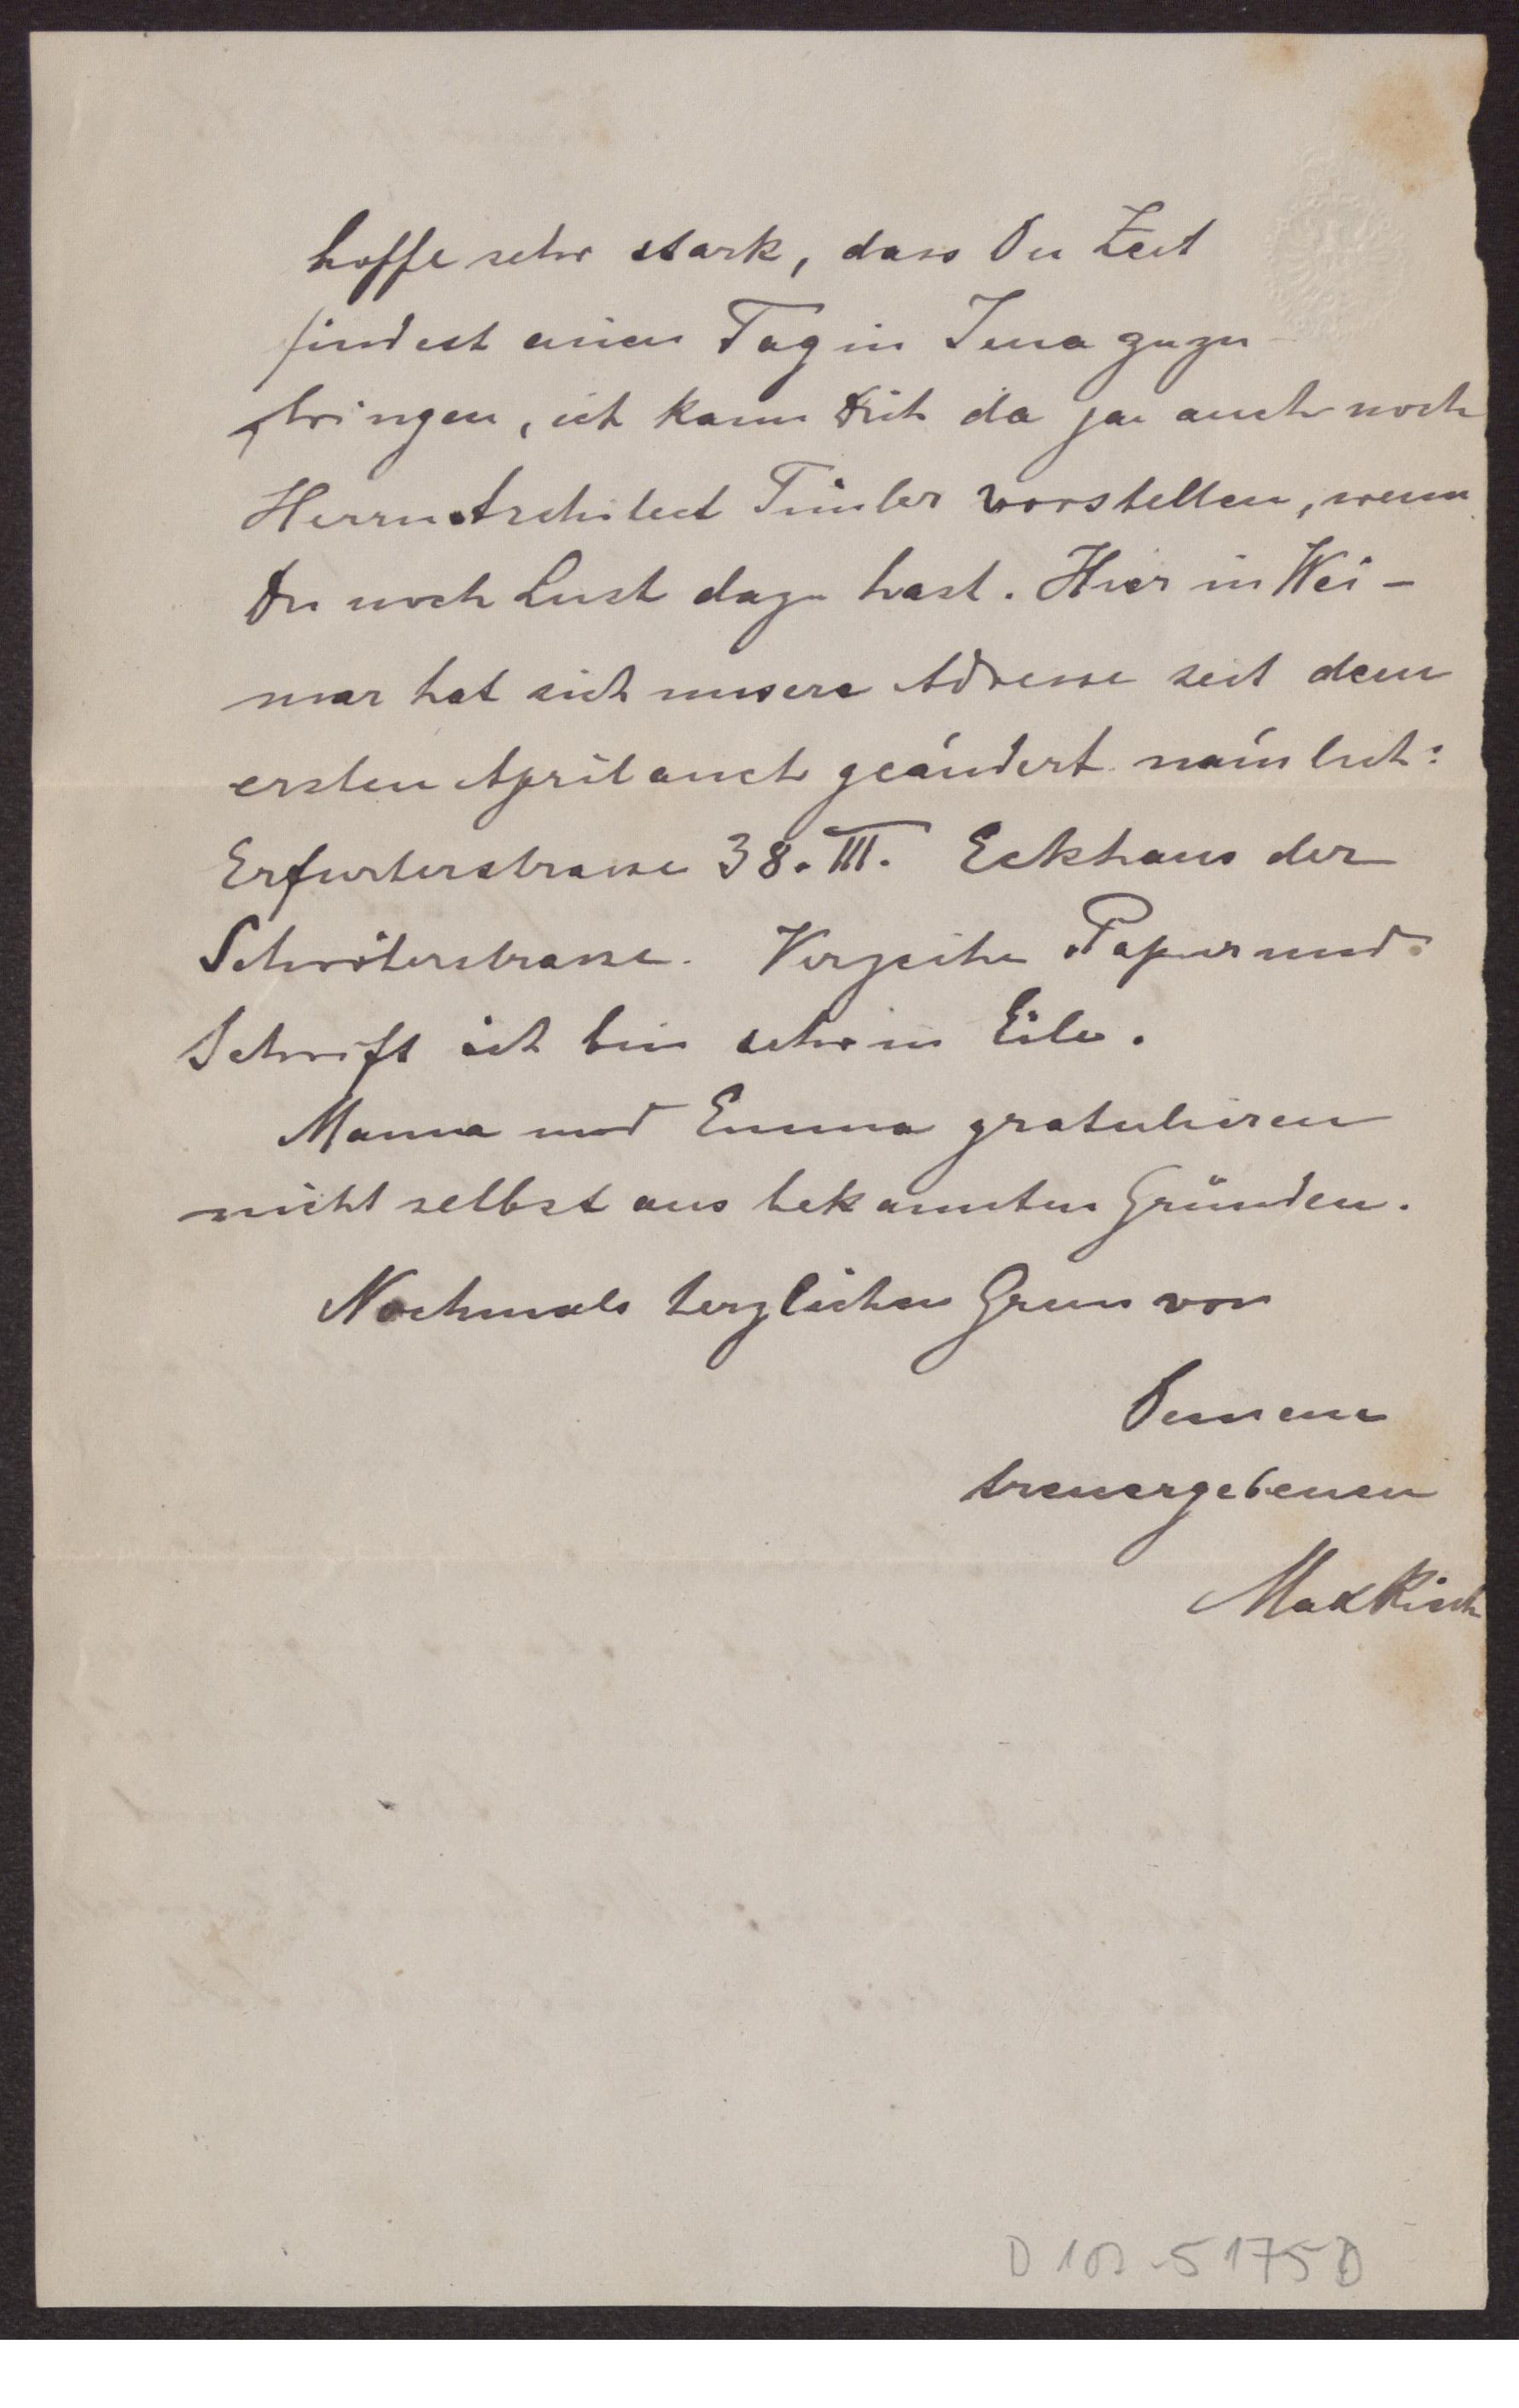 hoffe sehr stark, dass Du Zeit
findest einen Tag in Jena zuzu-
bringen, ich kann Dich da ja auch noch
Herrn Architect Timler vorstellen, wenn
Du noch Lust dazu hast. Hier in Wei-
mar hat sich unsere Adresse seit dem
ersten April auch geändert nämlich:
Erfurterstrasse 38. III. Eckhaus der
Schröterstrasse. Verzeihe Papier und
Schrift ich bin sehr in Eile.
Mama und Emma gratuliren
nicht selbst aus bekannten Gründen.
Nochmals herzlichen Gruss von
Deinem
treuergebenen
Max
D 100-5175D